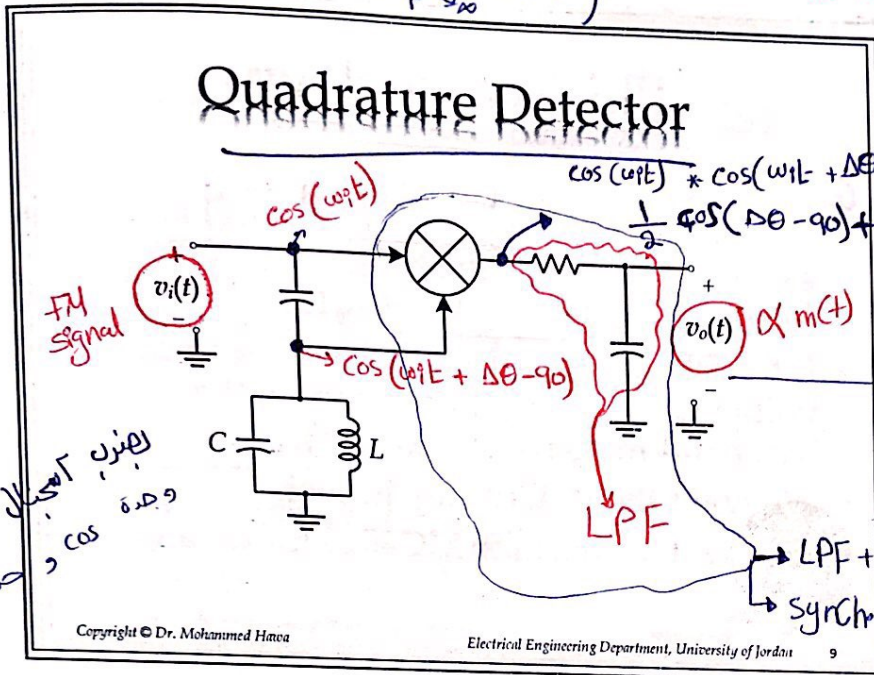 Quadrature Detector
cos (wit) * cos(wit + Δθ
1/2 cos(Δθ - 90) +
cos(wit)
+
vi(t)
-
FM
signal
+
vo(t)
-
α m(t)
cos(wit + Δθ - 90)
C
L
LPF
وحدة cos و
LPF +
Synch
Copyright © Dr. Mohammed Hawa
Electrical Engineering Department, University of Jordan
9